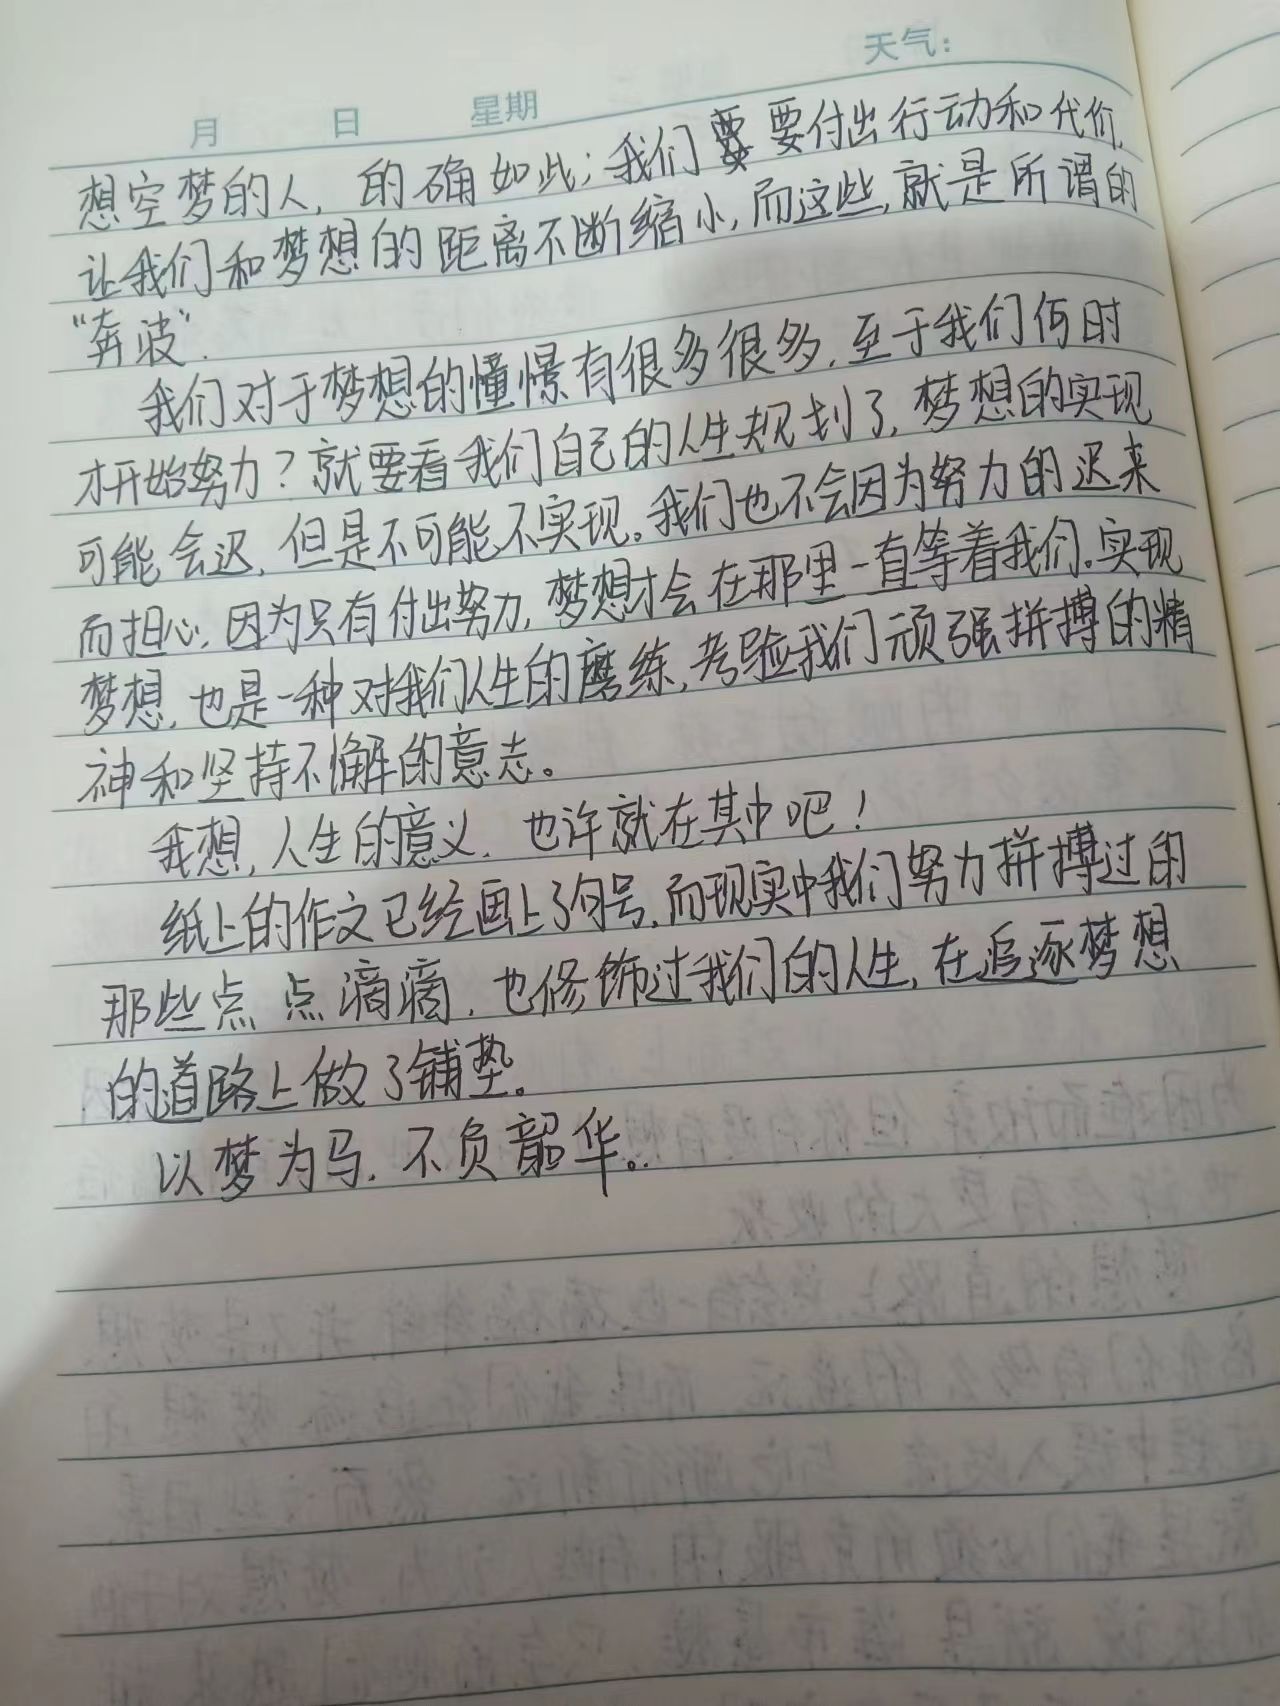 天气：
月 日 星期
想空梦的人，的确如此；我们要付出行动和代价，
让我们和梦想的距离不断缩小，而这些，就是所谓的
“奔波”．
我们对于梦想的憧憬有很多很多，至于我们何时
才开始努力？就要看我们自己的人生规划了，梦想的实现
可能会迟，但是不可能不实现。我们也不会因为努力的迟来
而担心，因为只有付出努力，梦想才会在那里一直等着我们。实现
梦想，也是一种对我们人生的磨练，考验我们顽强拼搏的精
神和坚持不懈的意志。
我想，人生的意义，也许就在其中吧！
纸上的作文已经画上了句号，而现实中我们努力拼搏过的
那些点点滴滴，也修饰过我们的人生，在追逐梦想
的道路上做了铺垫。
以梦为马，不负韶华。